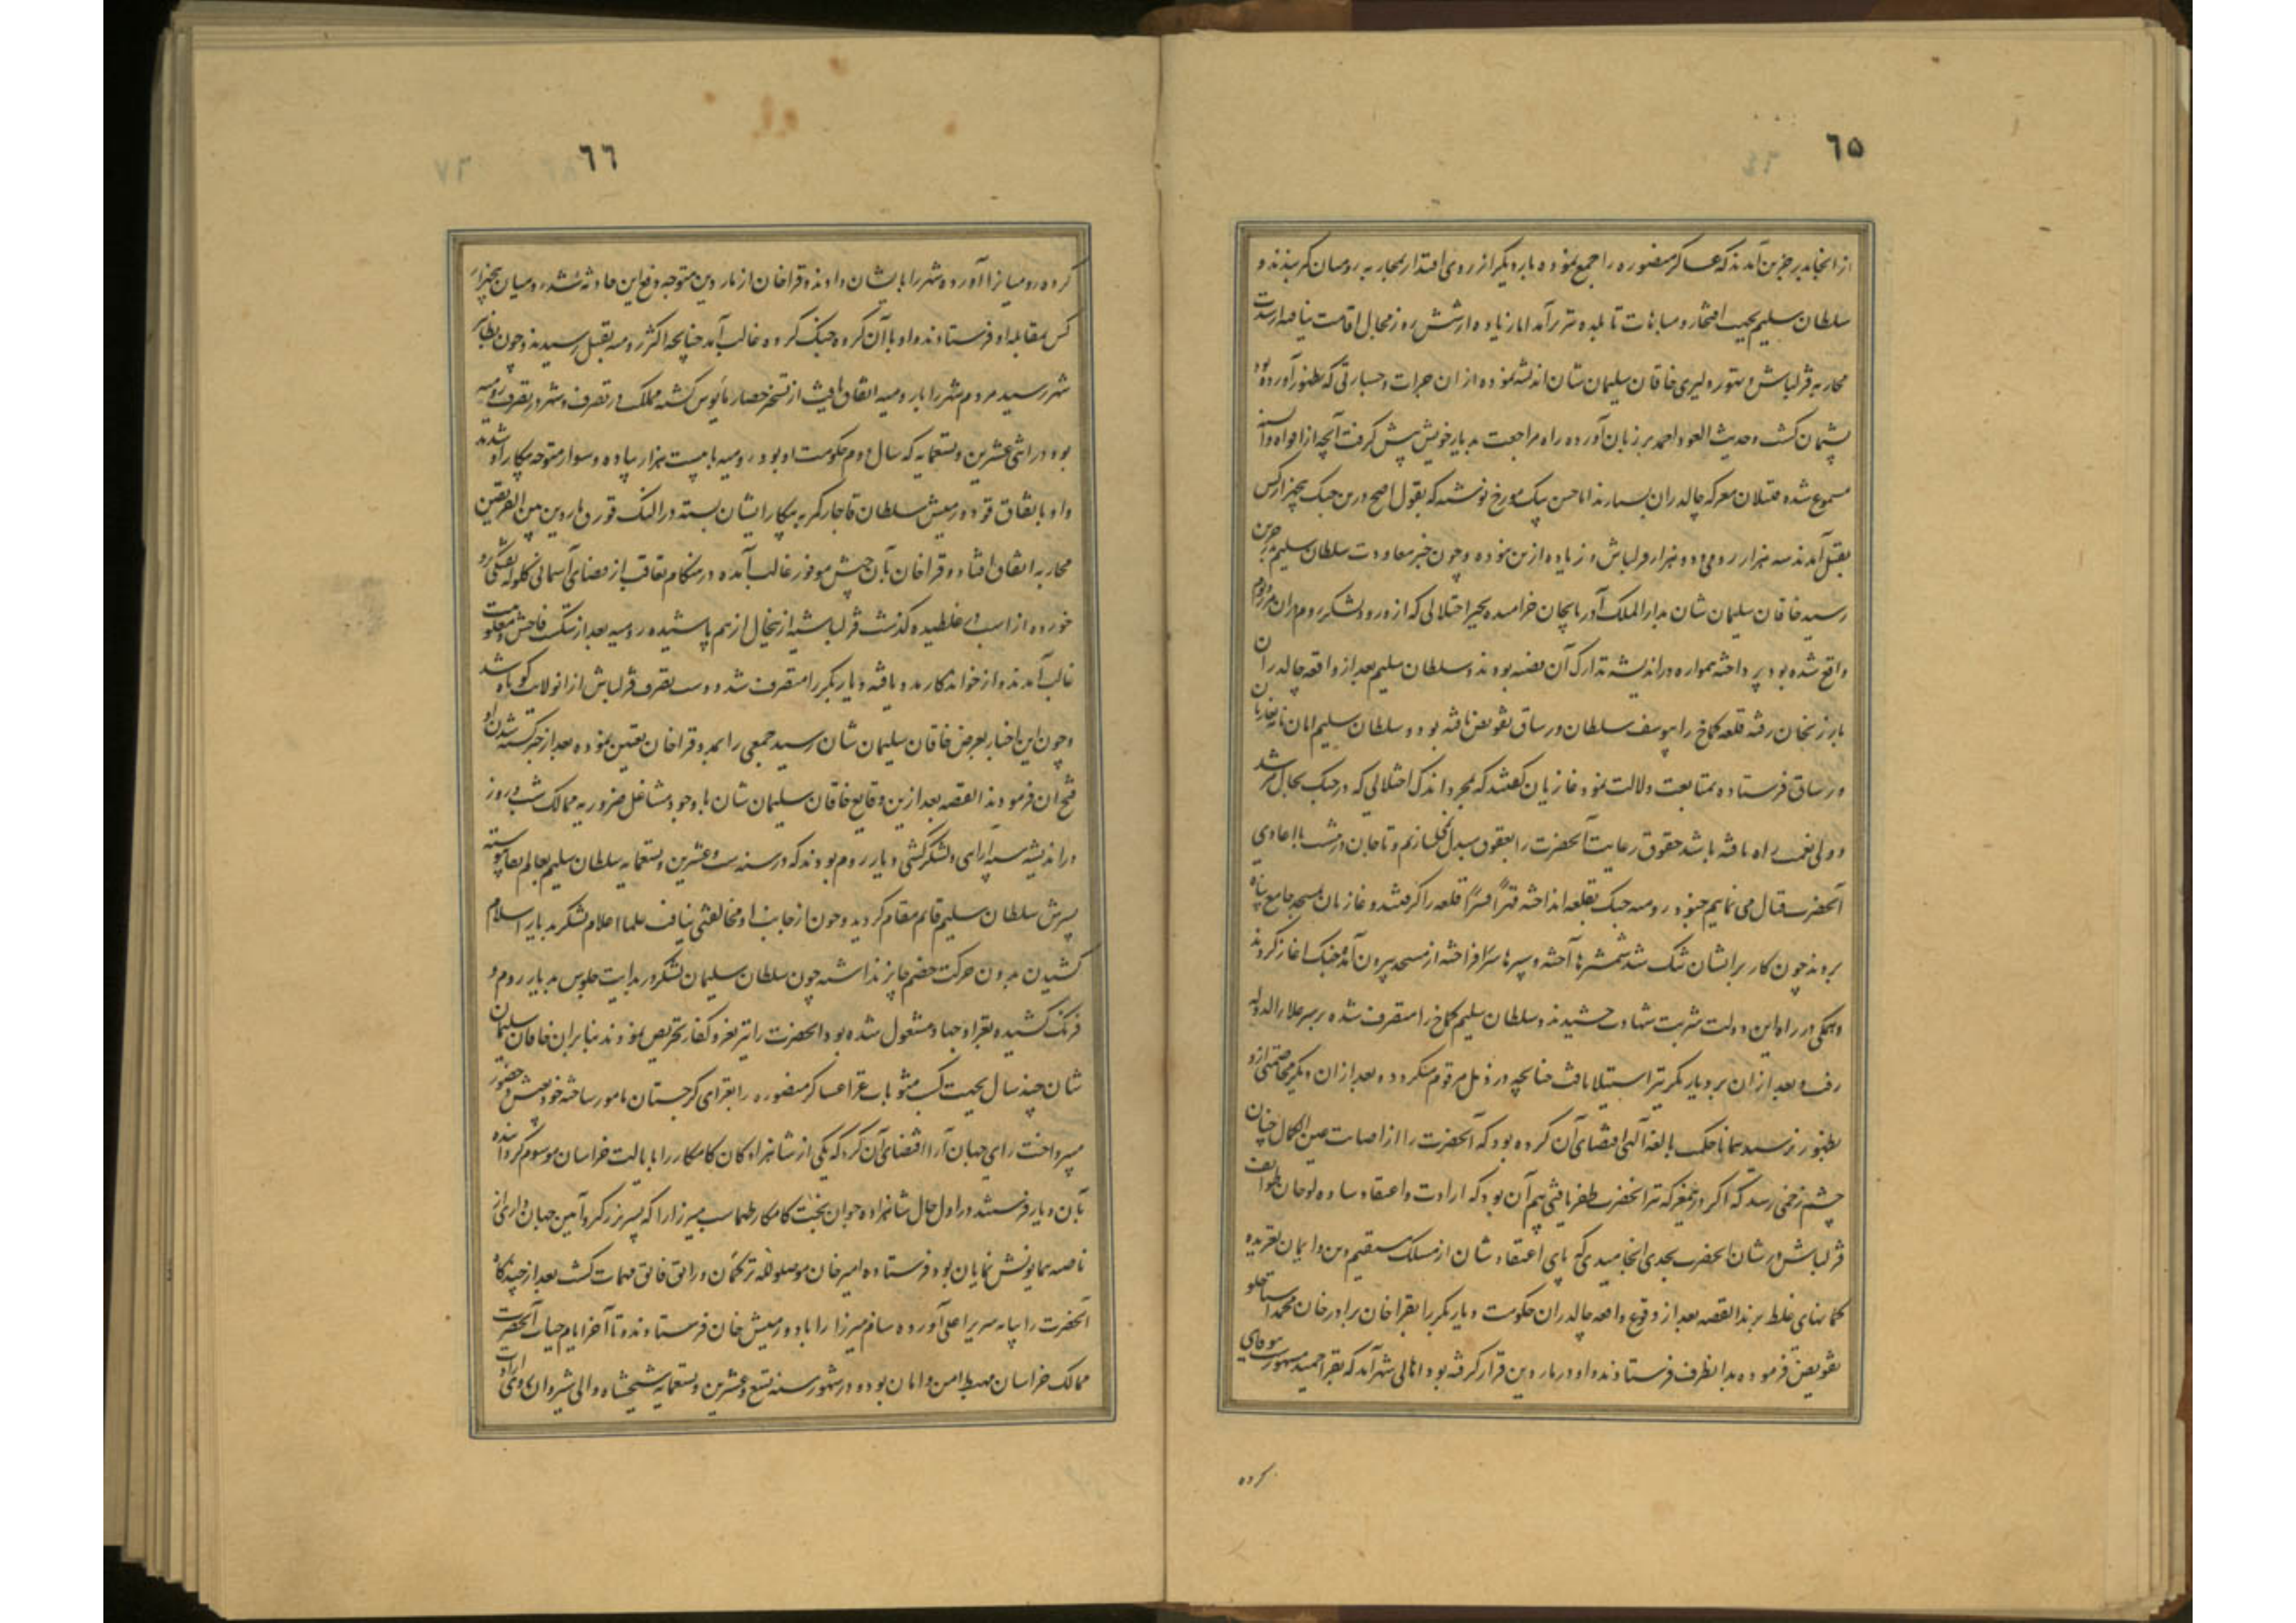 ٦٥
از آنجا بدرجزین آمدند که عساکر منصوره را جمع نموده بار دیگر از روی اقتدار بمحاربه رومیان کمر بندند و
سلطان سلیم بجهت افتخار و مباهات تا بلده تبریز آمد اما زیاده از شش روز مجال اقامت نیافته از سدت
محاربه قزلباش و تهور و دلیری خاقان سلیمان شان اندیشه نموده از آن جرات و جسارتی که بظهور آورده بود
پشیمان گشت و حدیث العود احمد بر زبان آورده راه مراجعت بدیار خویش پیش گرفت آنچه از افواه و السنه
مسموع شده قتیلان معرکه چالدران بسیارند اما حسن بیک مورخ نوشته که بقول اصح درین جنگ پنجهزار کس
بقتل آمدند سه هزار رومی و دو هزار قزلباش و زیاده ازین نبوده و چون خبر معاودت سلطان سلیم بدرجزین
رسید خاقان سلیمان شان بدار الملک آذربایجان خرامیده بجبر اختلالی که از ورود لشکر روم در آن مرز و بوم
واقع شده بود پرداخته همواره در اندیشه تدارک آن قضیه بودند و سلطان سلیم بعد از واقعه چالدران
بارزنجان رفته قلعه کماخ را بیوسف سلطان ورساق تفویض یافته بود و سلطان سلیم امان نامه بغازیان
ورساق فرستاده بمتابعت دلالت نمود غازیان گفتند که بمجرد اندک اختلالی که در جنگ بحال مرشد
و ولی نعمت راه یافته باشد حقوق رعایت آنحضرت را بعقوق مبدل نمیسازیم و تا جان در تنست با اعادی
آنحضرت قتال می نماییم جنود رومیه جنگ بقلعه انداخته قهراً قسراً قلعه را گرفتند و غازیان بمسجد جامع پناه
بردند چون کار بر ایشان تنگ شد شمشیرها آخته و سپرها بر سر افراخته از مسجد بیرون آمده جنگ آغاز کردند
و همگی در راه این دولت شربت شهادت چشیدند و سلطان سلیم کماخ را متصرف شده بر سر علاء الدوله
رفت و بعد از آن بر دیار بکر نیز استیلا یافت چنانچه در ذیل مرقوم میگردد و بعد از آن دیگر مخاصمتی ازو
بظهور نرسید همانا حکمت بالغه الهی اقتضای آن کرده بود که آنحضرت را از اصابت عین الکمال چنان
چشم زخمی رسد که اگر در معرکه نیز آنحضرت ظفر یافتی بیم آن بود که ارادت و اعتقاد ساده لوحان طوایف
قزلباش در شان آنحضرت بجدی انجامیدی که پای اعتقاد شان از مسلک مستقیم دین و ایمان لغزیده
گمانهای غلط برند القصه بعد از وقوع واقعه چالدران حکومت دیار بکر را بقراخان برادر خان محمد استاجلو
تفویض فرموده بدانطرف فرستادند و او در ماردین قرار گرفته بود اهالی شهر آمد که بقرا حمید مشهورست بیوفایی
کرده
٦٦
کرده رومیانرا آورده شهر را بایشان دادند و قراخان از ماردین متوجه دفع این حادثه شد رومیان پنجهزار
کس بمقابله او فرستادند و او با آن گروه جنگ کرده غالب آمد چنانچه اکثر رومیه بقتل رسیدند و چون بظاهر
شهر رسید مردم شهر را با رومیه اتفاق یافت از تسخیر حصار مایوس گشته مملکت در تصرف و شهر در تصرف رومیه
بود در اثنی عشرین و تسعمایه که سال دوم حکومت او بود رومیه با بیست هزار پیاده و سوار متوجه پیکار او شدند
و او باتفاق قودورمش سلطان قاجار کمر به پیکار ایشان بسته در النگ قورق ماردین بین الفریقین
محاربه اتفاق افتاد و قراخان بآن جیش موفور غالب آمده در هنگام تعاقب از قضای آسمانی گلوله تفنگی برو
خورده از اسب در غلطیده گذشت قزلباشیه از نحال از هم پاشیده رومیه بعد از شکست فاحش و مغلوبیت
غالب آمدند و از خواندگار مدد یافته دیار بکر را متصرف شد و دست تصرف قزلباش از انولایت کوتاه شد
و چون این اخبار بعرض خاقان سلیمان شان رسید جمعی را بمدد قراخان تعیین نموده بعد از خبر کشته شدن او
فتح آن فرمودند القصه بعد ازین وقایع خاقان سلیمان شان با وجود مشاغل ضروریه ممالک شب و روز
در اندیشه سپه آرایی و لشکرکشی دیار روم بودند که در سنه ست و عشرین و تسعمایه سلطان سلیم بعالم بقا پیوسته
پسرش سلطان سلیم قایم مقام گردید و چون از جانب او مخالفتی نیافت علما اعلام لشکر بدیار اسلام
کشیدن بدون حرکت خصم جایز نداشته چون سلطان سلیمان لشکر در بدایت جلوس بدیار روم و
فرنگ کشیده بغزا و جهاد مشغول شده بود آنحضرت را نیز بغزو کفار تحریص نمودند بنابران خاقان سلیمان
شان چند سال بجهت کسب مثوبات غزا عساکر منصوره را بغزای گرجستان مامور ساخته خود بعیش و حضور
میپرداخت رای جهان آرا اقتضای آن کرد که یکی از شاهزادگان کامکار را بایالت خراسان موسوم گردانیده
بآن دیار فرستند در اول حال شاهزاده جوان بخت کامکار طهماسب میرزا را که پسر بزرگتر و آیین جهان داری از
ناصیه همایونش نمایان بود فرستاده امیرخان موصلوی ترکمان و راتق فاتق مهمات گشت بعد از چندگاه
آنحضرت را بپایه سریر اعلی آورده سام میرزا را با دورمیش خان فرستادند و تا آخر ایام حیات آنحضرت
ممالک خراسان مهبط امن و امان بود و در شهور سنه تسع و عشرین و تسعمایه شیخشاه والی شیروان روی ارادت